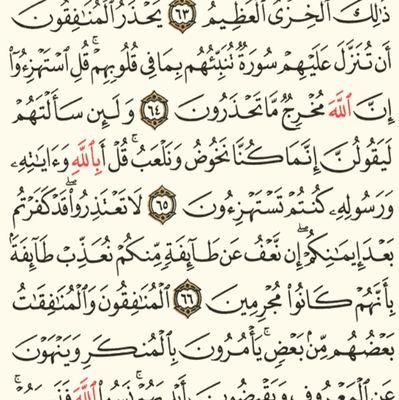 ذَٰلِكَ ٱلْخِزْىُ ٱلْعَظِيمُ ٦٣ يَحْذَرُ ٱلْمُنَٰفِقُونَ
أَن تُنَزَّلَ عَلَيْهِمْ سُورَةٌ تُنَبِّئُهُم بِمَا فِى قُلُوبِهِمْ ۚ قُلِ ٱسْتَهْزِءُوٓا۟
إِنَّ ٱللَّهَ مُخْرِجٌ مَّا تَحْذَرُونَ ٦٤ وَلَئِن سَأَلْتَهُمْ
لَيَقُولُنَّ إِنَّمَا كُنَّا نَخُوضُ وَنَلْعَبُ ۚ قُلْ أَبِٱللَّهِ وَءَايَٰتِهِۦ
وَرَسُولِهِۦ كُنتُمْ تَسْتَهْزِءُونَ ٦٥ لَا تَعْتَذِرُوا۟ ۖ قَدْ كَفَرْتُم
بَعْدَ إِيمَٰنِكُمْ ۖ إِن نَّعْفُ عَن طَآئِفَةٍ مِّنكُمْ نُعَذِّبْ طَآئِفَةًۢ
بِأَنَّهُمْ كَانُوا۟ مُجْرِمِينَ ٦٦ ٱلْمُنَٰفِقُونَ وَٱلْمُنَٰفِقَٰتُ
بَعْضُهُم مِّنۢ بَعْضٍ ۚ يَأْمُرُونَ بِٱلْمُنكَرِ وَيَنْهَوْنَ
عَنِ ٱلْمَعْرُوفِ وَيَقْبِضُونَ أَيْدِيَهُمْ ۚ نَسُوا۟ ٱللَّهَ فَنَسِيَهُمْ ۗ